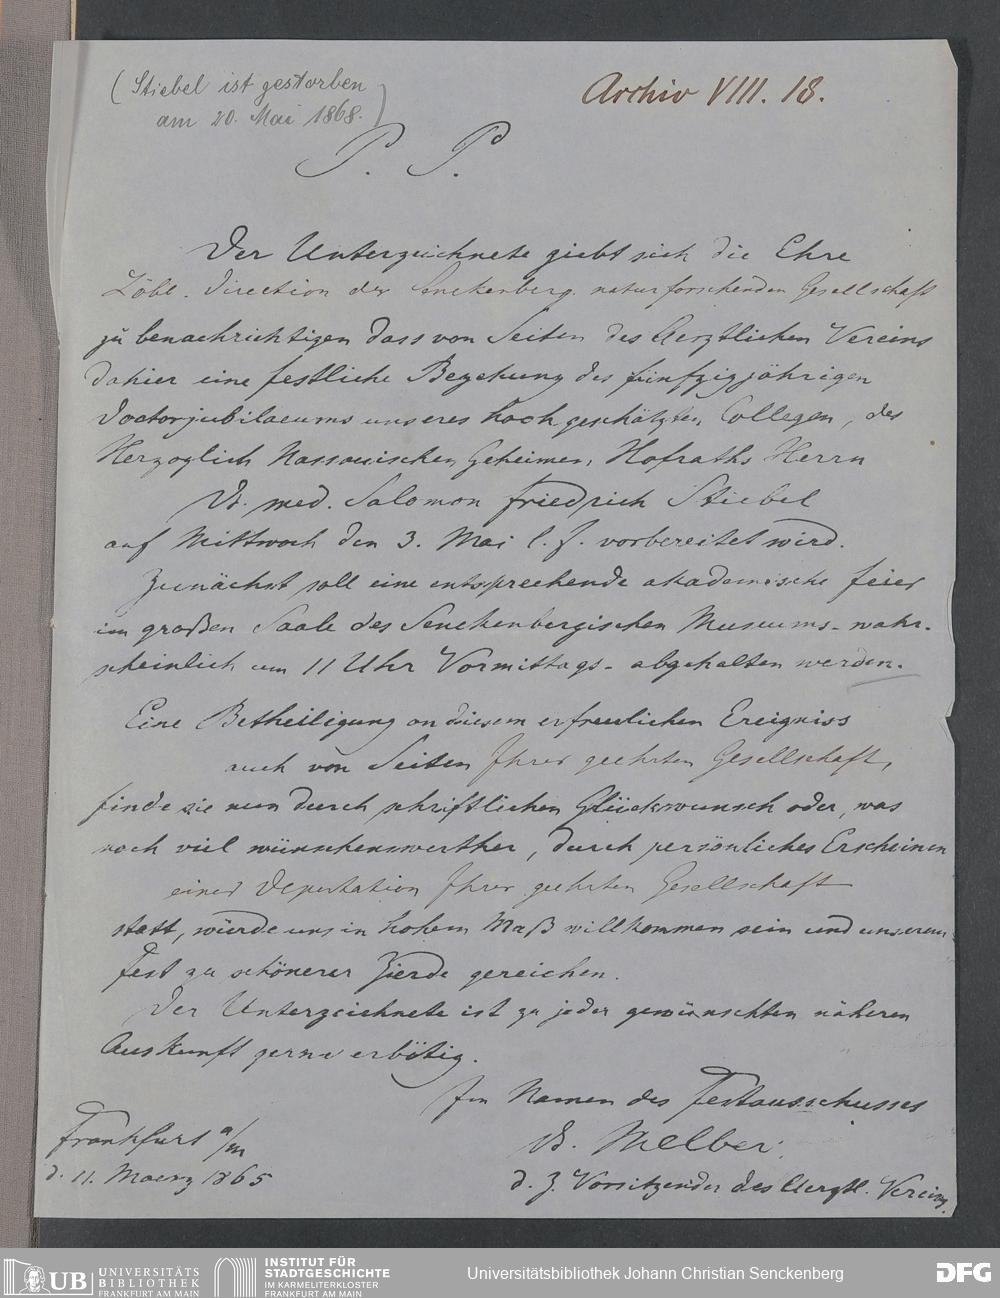 (Stiebel ist gestorben
am 20. Mai 1868.)
Archiv VIII. 18.
P. P.
Der Unterzeichnete giebt sich die Ehre
Löbl. Direction der Senckenberg. naturforschenden Gesellschaft
zu benachrichtigen dass von Seiten des Aerztlichen Vereins
dahier eine festliche Begehung des fünfzigjährigen
Doctorjubilaeums unseres hochgeschätzten Collegen, des
Herzoglich Nassauischen Geheimen Hofraths Herrn
Dr. med. Salomon Friedrich Stiebel
auf Mittwoch den 3. Mai l. J. vorbereitet wird.
Zunächst soll eine entsprechende akademische Feier
im großen Saale des Senckenbergischen Museums - wahr-
scheinlich um 11 Uhr Vormittags - abgehalten werden.
Eine Betheiligung an diesem erfreulichen Ereigniss
auch von Seiten Ihrer geehrten Gesellschaft,
finde sie nun durch schriftlichen Glückwunsch oder, was
noch viel wünschenswerther, durch persönliches Erscheinen
einer Deputation Ihrer geehrten Gesellschaft
statt, würde uns in hohem Maß willkommen sein und unserem
Fest zu schönerer Zierde gereichen.
Der Unterzeichnete ist zu jeder gewünschten näheren
Auskunft gerne erbötig.
Im Namen des Festausschusses
Dr. Melber.
d. Z. Vorsitzender des Aerztl. Vereins.
Frankfurt a/m
d. 11. Maerz 1865
UB UNIVERSITÄTS
BIBLIOTHEK
FRANKFURT AM MAIN
INSTITUT FÜR
STADTGESCHICHTE
IM KARMELITERKLOSTER
FRANKFURT AM MAIN
Universitätsbibliothek Johann Christian Senckenberg
DFG